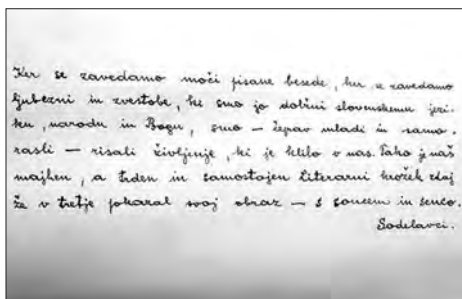 Ker se zavedamo moči pisane besede, ker se zavedamo
ljubezni in zvestobe, ki smo jo dolžni slovenskemu jezi-
ku, narodu in Bogu, smo — čeprav mladi in samo-
rasli — risali življenje, ki je klilo v nas. Tako je naš
majhen, a trden in samostojen literarni krožek zdaj
že v tretje pokazal svoj obraz — s soncem in senco.
Sodelavci.